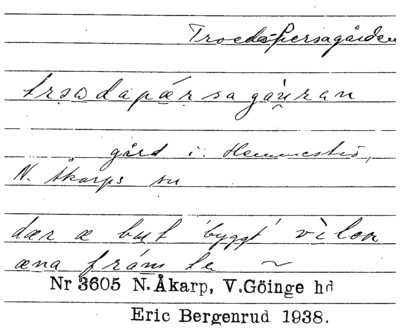 Troedspersagården
trwdapærsagåuran
gård i Hemmeströ,
N. Åkarps sn
dær æ but 'byggt'
æna fråm te ~
Nr 3605 N.Åkarp, V.Göinge hd
Eric Bergenrud 1938.